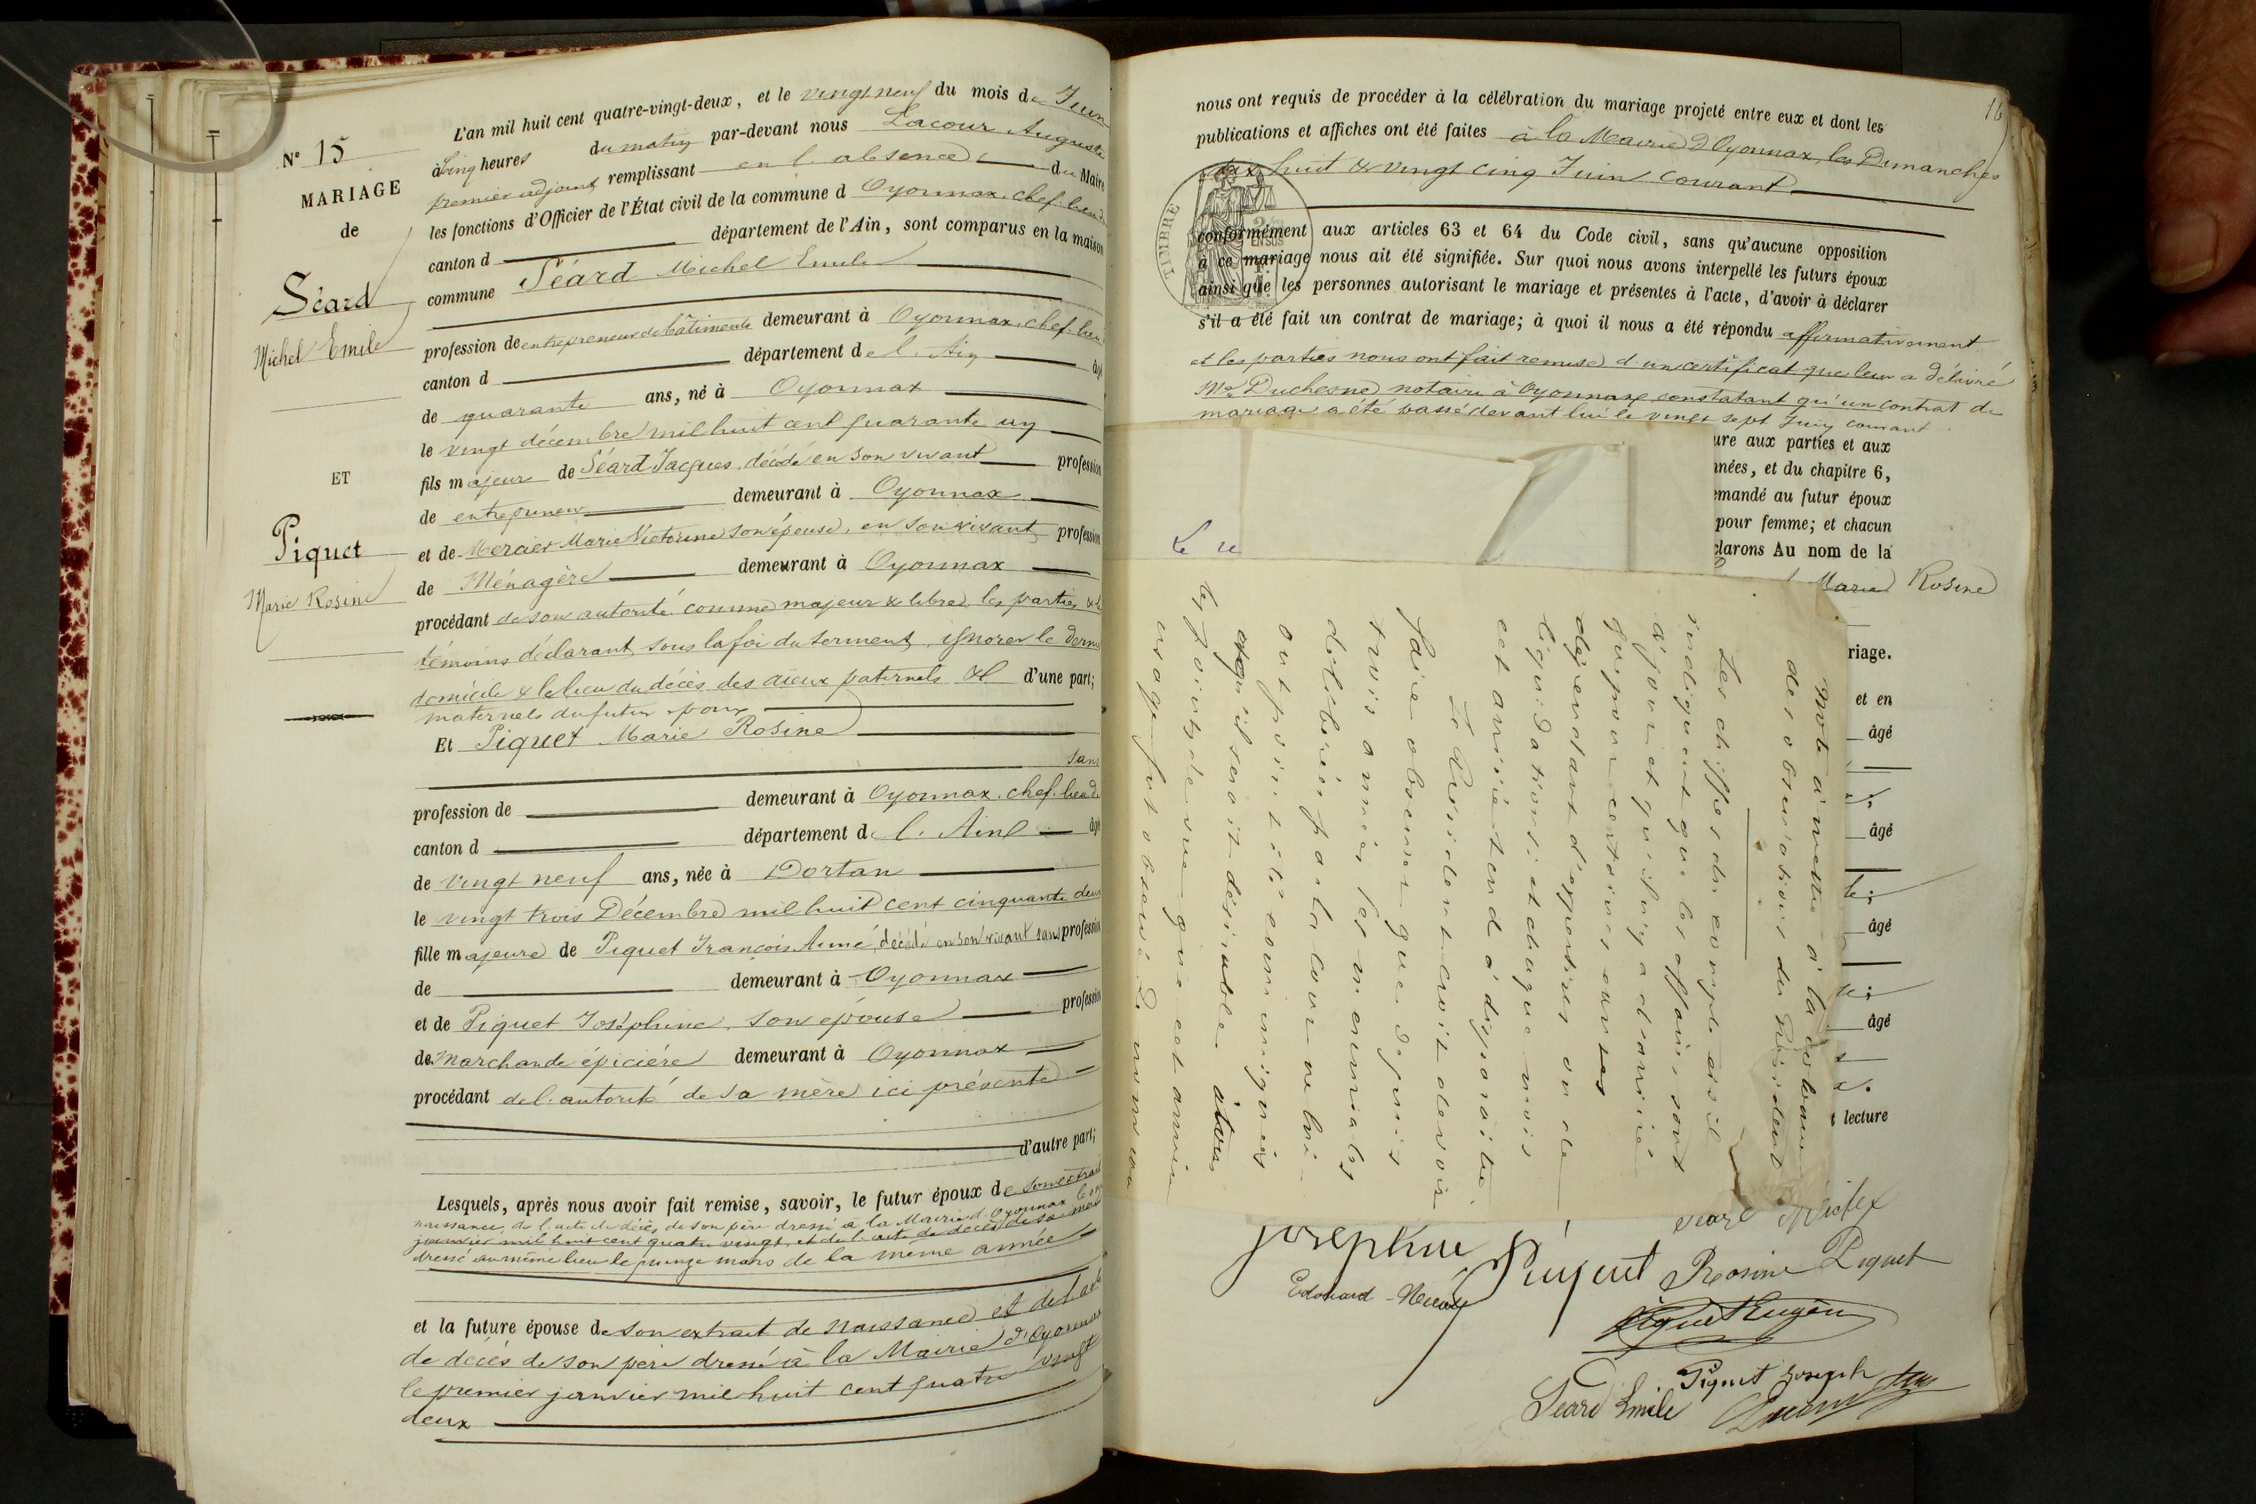 N° 15
MARIAGE
de
Séard
Michel Emile
ET
Piquet
Marie Rosine
L'an mil huit cent quatre-vingt-deux, et le vingt neuf du mois de Juin
à cinq heures du matin par-devant nous Lacour Auguste
premier adjoint remplissant en l'absence du Maire
les fonctions d'Officier de l'État civil de la commune d Oyonnax, chef lieu de
canton d département de l'Ain, sont comparus en la maison
commune Séard Michel Emile
profession de entrepreneur de bâtiments demeurant à Oyonnax, chef lieu
canton d département de l'Ain âgé
de quarante ans, né à Oyonnax
le vingt décembre mil huit cent quarante un
fils majeur de Séard Jacques, décédé en son vivant profession
de entrepreneur demeurant à Oyonnax
et de Mercier Marie Victorine son épouse, en son vivant profession
de Ménagère demeurant à Oyonnax
procédant de son autorité comme majeur & libre, les parties & les
témoins déclarant sous la foi du serment, ignorer le dernier
domicile & le lieu du décès des aïeux paternels & d'une part;
maternels du futur époux
Et Piquet Marie Rosine
sans
profession de demeurant à Oyonnax, chef lieu de
canton d département de l'Ain âgé
de vingt neuf ans, née à Dortan
le vingt trois Décembre mil huit cent cinquante deux
fille majeure de Piquet François Aimé, décédé en son vivant sans profession
de demeurant à Oyonnax
et de Piquet Joséphine, son épouse profession
de marchande épicière demeurant à Oyonnax
procédant de l'autorité de sa mère ici présente
d'autre part;
Lesquels, après nous avoir fait remise, savoir, le futur époux de son extrait
naissance, de l'acte de décès de son père dressé à la Mairie d'Oyonnax le
janvier mil huit cent quatre vingt, et de l'acte de décès de sa mère
dressé au même lieu le quinze mars de la même année
et la future épouse de son extrait de naissance et de l'acte
de décès de son père dressé à la Mairie d'Oyonnax
le premier janvier mil huit cent quatre vingt
deux
16
nous ont requis de procéder à la célébration du mariage projeté entre eux et dont les
publications et affiches ont été faites à la Mairie d'Oyonnax, les Dimanches
dix huit & vingt cinq Juin courant
TIMBRE
conformément aux articles 63 et 64 du Code civil, sans qu'aucune opposition
à ce mariage nous ait été signifiée. Sur quoi nous avons interpellé les futurs époux
ainsi que les personnes autorisant le mariage et présentes à l'acte, d'avoir à déclarer
s'il a été fait un contrat de mariage; à quoi il nous a été répondu affirmativement
et les parties nous ont fait remise d'un certificat que leur a délivré
Me Duchesne notaire à Oyonnax constatant qu'un contrat de
mariage a été passé devant lui le vingt sept Juin courant
ure aux parties et aux
nnées, et du chapitre 6,
emandé au futur époux
pour femme; et chacun
clarons Au nom de la
Marie Rosine
riage.
et en
âgé
âgé
âgé
âgé
lecture
Note à mettre à la
des observations du Président
Les chiffres du compte civil
indiquent que les affaires sont
à jour et qu'il n'y a d'arriéré
que pour certaines ventes
dépendant d'opposition ou de
liquidation et chaque mois
cet arriéré tend à disparaître
Le Président croit devoir
faire observer que depuis
trois années les mercuriales
délibérées par la Cour ne lui
ont point été communiquées
qu'il serait désirable
les points de vue que cet ancien
usage fut observé
Joséphine Piquet Rosine Piquet
Edouard
Piquet Eugène
Piquet Joseph
Séard Emile